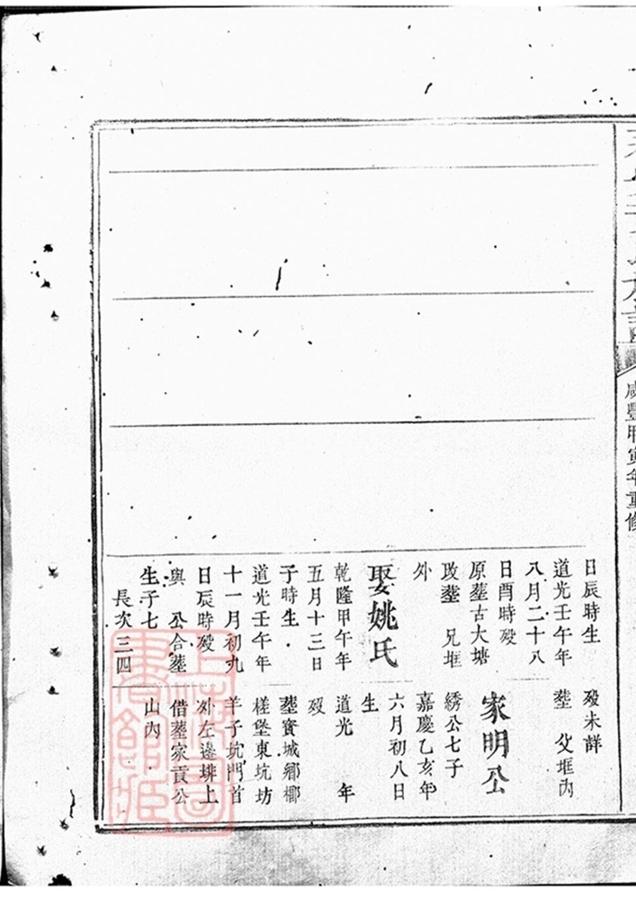 咸豐甲寅年重修
日辰時生
道光壬午年
八月二十八
日酉時歿
原塟古大塘
改塟 兄堆
外
娶姚氏
乾隆甲午年
五月十三日
子時生
道光壬午年
十一月初九
日辰時歿
與 公合塟
生子七
長次三四
歿未詳
塟 父堆內
家明公
綉公七子
嘉慶乙亥年
六月初八日
生
道光 年
歿
塟實城鄉椰
槎堡東坑坊
羊子坑門首
外左邊排上
借塟家貢公
山內
上海圖書館藏